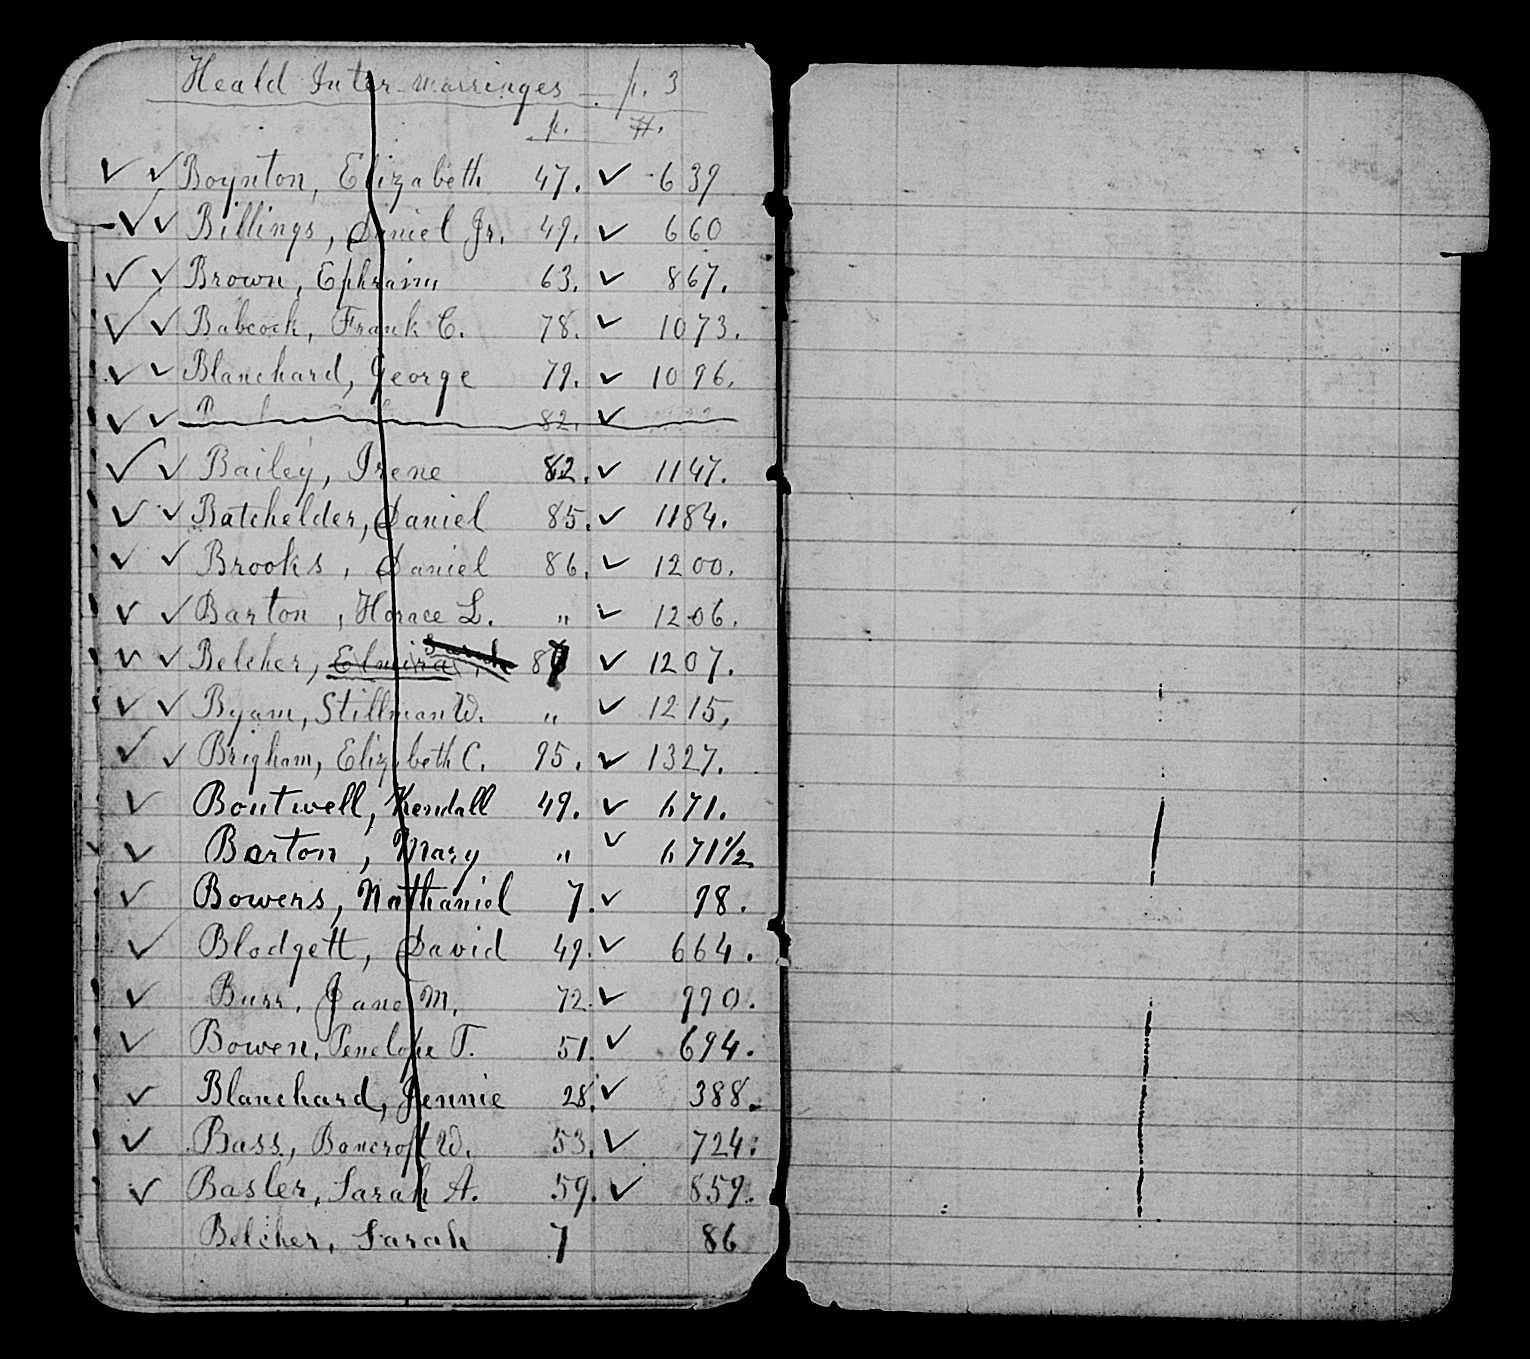 Heald Inter-marriages — p. 3
p. #.
✓ ✓ Boynton, Elizabeth 47. ✓ 639
✓ ✓ Billings, Daniel Jr. 49. ✓ 660
✓ ✓ Brown, Ephraim 63. ✓ 867.
✓ ✓ Babcock, Frank C. 78. ✓ 1073.
✓ ✓ Blanchard, George 79. ✓ 1096.
✓ ✓ 82. ✓
✓ ✓ Bailey, Irene 82. ✓ 1147.
✓ ✓ Batchelder, Daniel 85. ✓ 1184.
✓ ✓ Brooks, Daniel 86. ✓ 1200.
✓ ✓ Barton, Horace L. " ✓ 1206.
✓ ✓ Belcher, Elmira, Sarah 87 ✓ 1207.
✓ ✓ Byam, Stillman W. " ✓ 1215,
✓ ✓ Brigham, Elizabeth C. 95. ✓ 1327.
✓ Boutwell, Kendall 49. ✓ 671.
✓ Barton, Mary " ✓ 671 1/2
✓ Bowers, Nathaniel 7. ✓ 98.
✓ Blodgett, David 49. ✓ 664.
✓ Burr, Jane M. 72. ✓ 990.
✓ Bowen, Penelope T. 51. ✓ 694.
✓ Blanchard, Jennie 28. ✓ 388.
✓ Bass, Bancroft W. 53. ✓ 724.
✓ Basler, Sarah A. 59. ✓ 859.
Belcher, Sarah 7 86